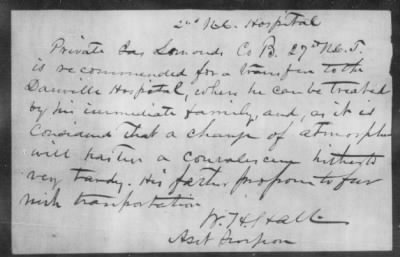 2nd N.C. Hospital
Private Co B. 27th N.C.T.
is recommended for a transfer to the
Danville Hospital, where he can be treated
by his immediate family, and, as it is
that a change of atmosphere
will hasten a convalescence hitherto
very tardy. His father to fur
nish transportation
W. H. Hall
Asst Surgeon